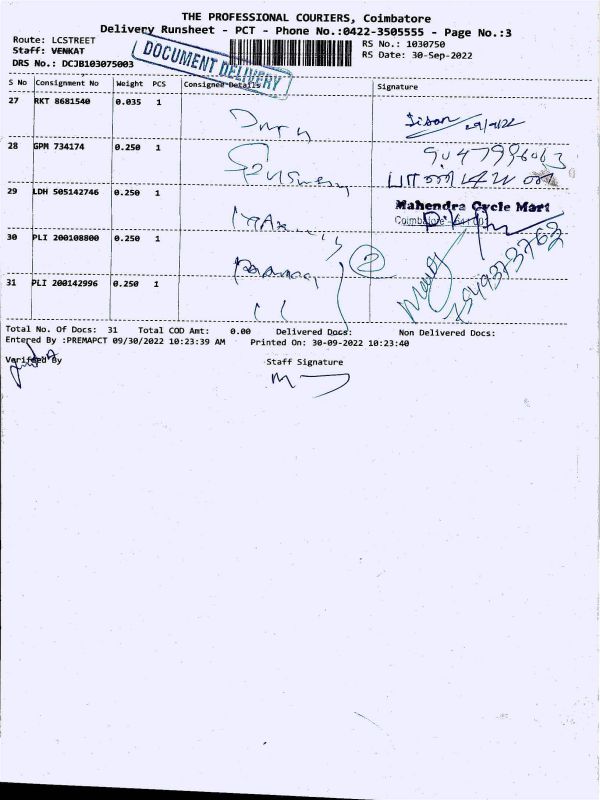 THE PROFESSIONAL COURIERS, Coimbatore
Delivery Runsheet - PCT - Phone No.:0422-3505555 - Page No.:3
Route: LCSTREET
Staff: VENKAT
DRS No.: DCJB103075003
DOCUMENT DELIVERY
RS No.: 1030750
RS Date: 30-Sep-2022
S No Consignment No Weight PCS Consignee Details Signature
27 RKT 8681540 0.035 1
28 GPM 734174 0.250 1
29 LDH 505142746 0.250 1
Mahendra Cycle Mart
Coimbatore - 641 001
30 PLI 200108800 0.250 1
2
31 PLI 200142996 0.250 1
Total No. Of Docs: 31 Total COD Amt: 0.00 Delivered Docs: Non Delivered Docs:
Entered By :PREMAPCT 09/30/2022 10:23:39 AM Printed On: 30-09-2022 10:23:40
Verified By Staff Signature